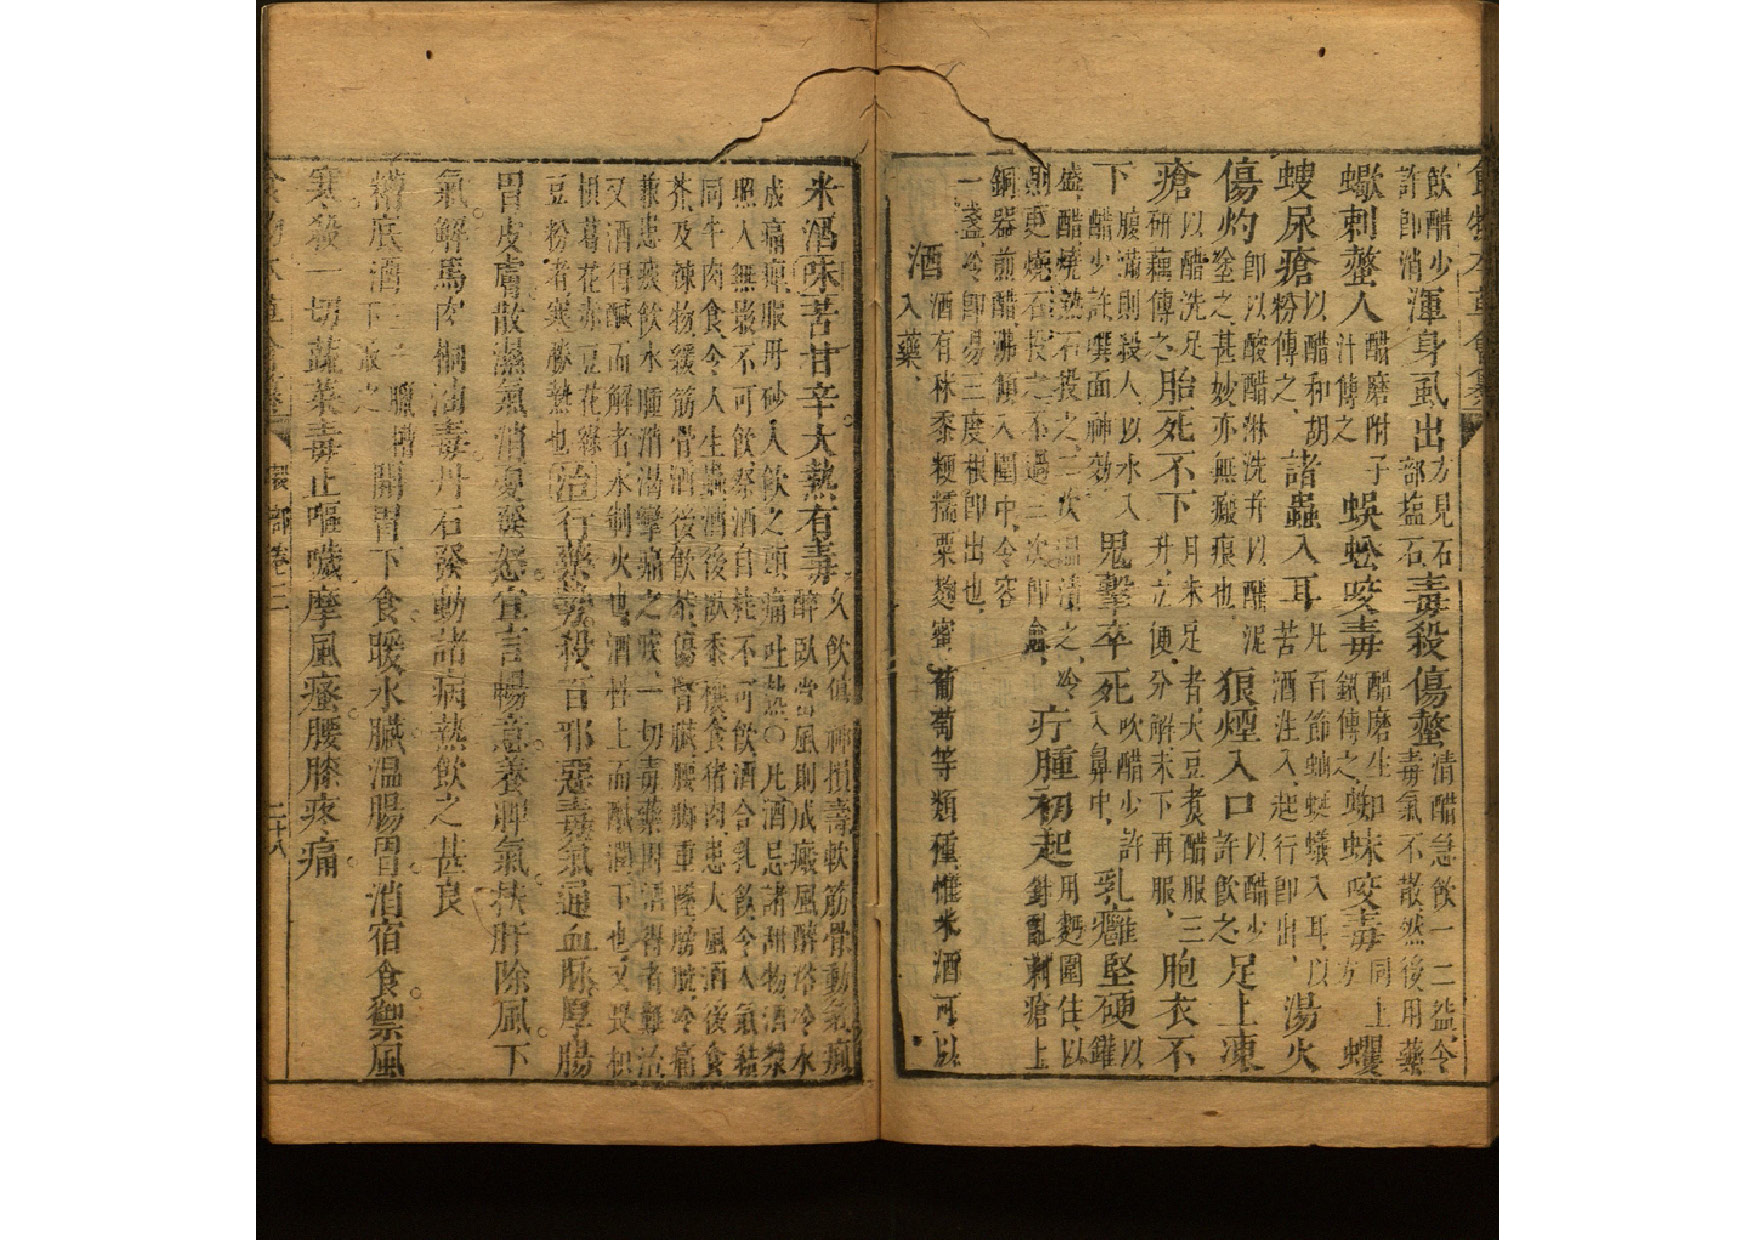 飲醋少
許即消
渾身虱出
方見石
部塩石
毒殺傷螫
清醋急飲一二盌令
毒氣不散然後用藥
蠍刺螫人
醋磨附子
汁傅之
蜈蚣咬毒
醋磨生
鉄傅之
蜘蛛咬毒
同上
方
蠼
螋尿瘡
以醋和胡
粉傅之
諸蟲入耳
凡百節蚰蜒蟻入耳以
苦酒注入起行即出
湯火
傷灼
即以酸醋淋洗并以醋泥
塗之甚妙亦無瘢痕也
狼煙入口
以醋少
許飲之
足上凍
瘡
以醋洗足
研藕傅之
胎死不下
月未足者大豆煮醋服三
升立便分解未下再服
胞衣不
下
腹滿則殺人以水入
醋少許噀面神効
鬼擊卒死
吹醋少許
入鼻中
乳癰堅硬
以鑵
盛醋燒熱石投之二次温漬之冷
則更燒石投之不過三次即愈
疔腫初起
用麪圍住以
針亂刺瘡上
銅器煎醋沸傾入圍中令容
一盞冷即易三度根即出也
酒
酒有秫黍粳糯粟麯蜜葡萄等類種惟米酒可以
入藥
米酒味苦甘辛大熱有毒
久飲傷神損壽軟筋骨動氣痢
醉臥當風則成癜風醉浴冷水
成痛痺服丹砂人飲之頭痛吐熱○凡酒忌諸甜物酒漿
照人無影不可飲祭酒自耗不可飲酒合乳飲令人氣結
同牛肉食令人生蟲酒後臥黍穰食猪肉患大風酒後食
芥及辣物緩筋骨酒後飲茶傷腎臟腰脚重膇膀胱冷痛
兼患痰飲水腫消渴攣痛之疾一切毒藥因酒得者難治
又酒得醎而解者水制火也酒性上而醎潤下也又畏枳
椇葛花赤豆花綠
豆粉者寒勝熱也
治行藥勢殺百邪惡毒氣通血脉厚腸
胃皮膚散濕氣消憂發怒宣言暢意養脾氣扶肝除風下
氣解馬肉桐油毒丹石發動諸病熱飲之甚良
糟底酒
三年臘糟
下取之
開胃下食暖水臟温腸胃消宿食禦風
寒殺一切蔬菜毒止嘔噦摩風瘙腰膝疼痛
卷二
二十八